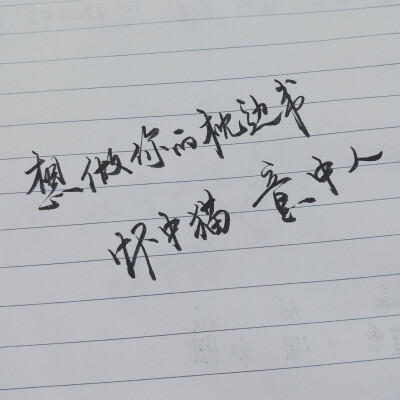 想做你的枕边书
怀中猫 意中人